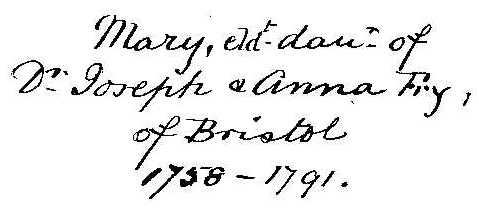 Mary, eldt. daur. of
Dr. Joseph & Anna Fry,
of Bristol
1758 – 1791.